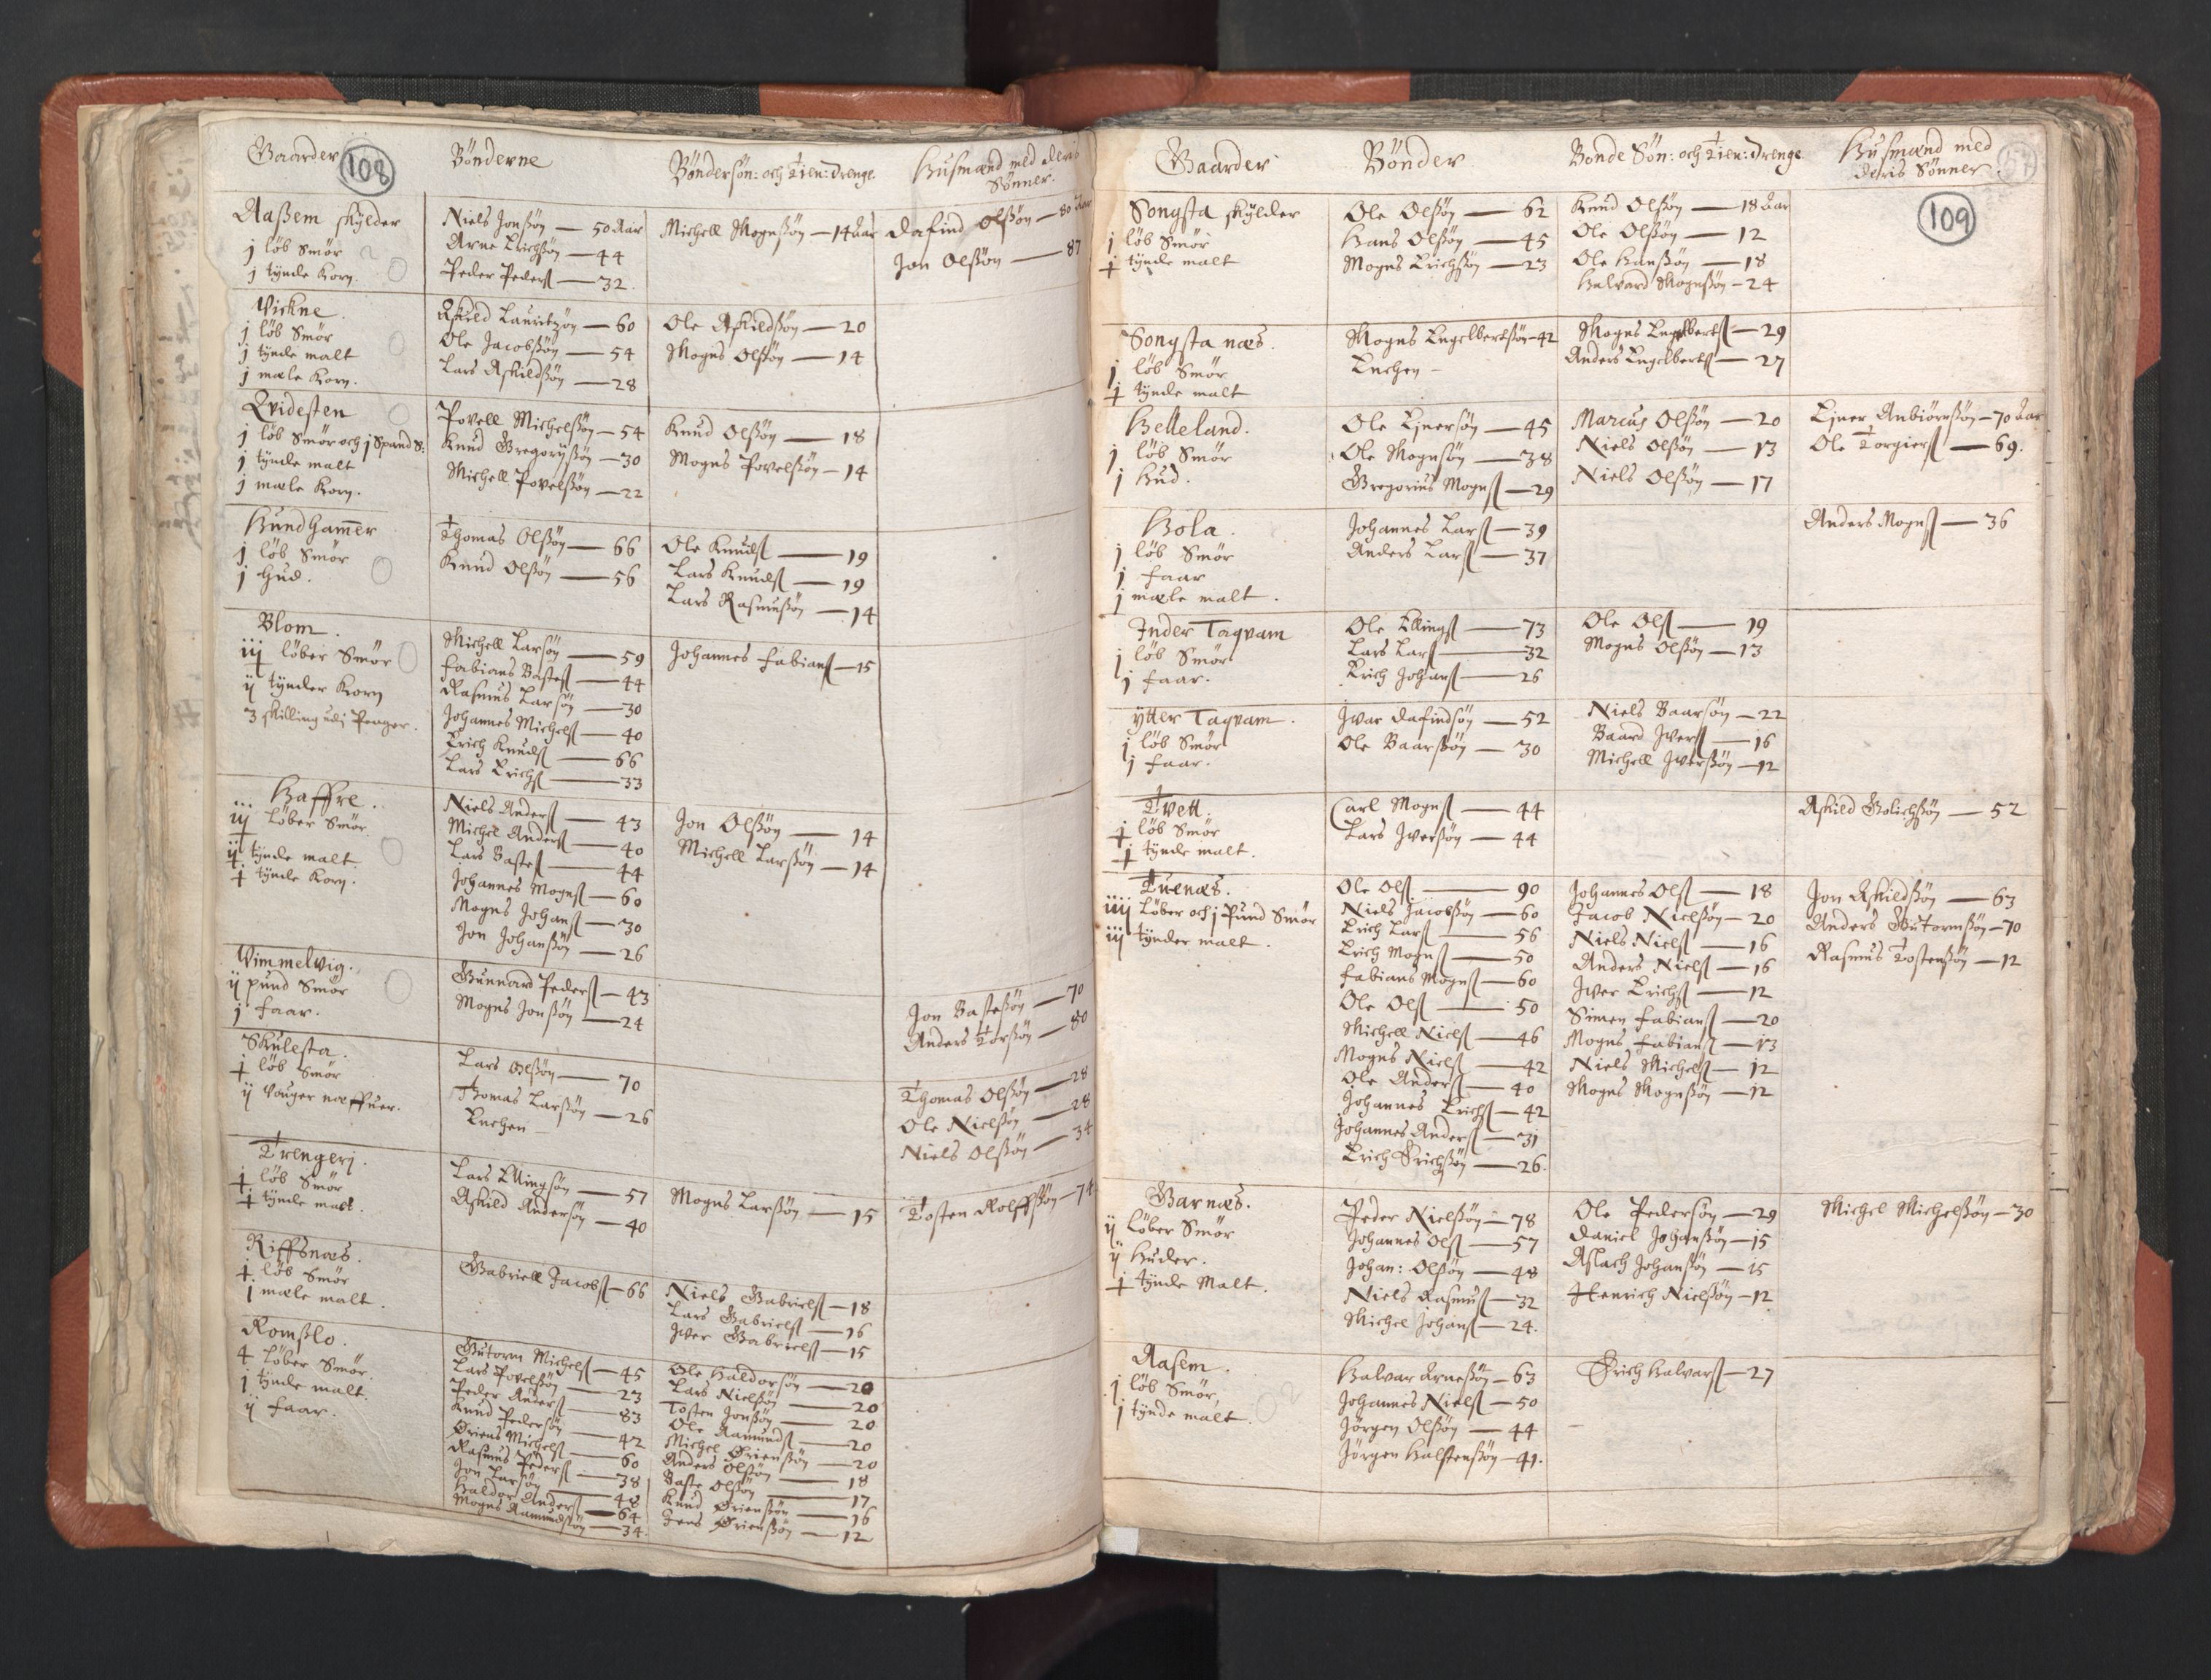 Gaarder
108
Bönderne
Böndersön: och Tien: Drenge
Husmænd med deris
Sönner.
Aaßem skylder
j löb Smör
j tynde Korn.
Niels Jonßön — 50 Aar
Arne Erichßön — 44
Peder Peders — 32.
Michell Mognßön — 14 Aar
Dafind Olßön — 80 Aar
Jon Olßön — 87
Vickne.
j löb Smör
j tynde malt
j mæle Korn.
Askild Lauritzön — 60
Ole Jacobßön — 54
Lars Askildßön — 28
Ole Askildßön — 20
Mogns Olßön — 14
Qvidesten
j löb Smör och j Spand S:
j tynde malt
j mæle Korn.
Povell Michelßön — 54
Knud Gregoryßön — 30
Michell Povelßön — 22
Knud Olßön — 18
Mogns Povelßön — 14
Hundhamer
j löb Smör
j Hud.
Thomas Olßön — 66
Knud Olßön — 56
Ole Knuds — 19
Lars Knuds — 19
Lars Rasmußön — 14
Blom.
iij löber Smör
ij tynder Korn
3 skilling udj Penger.
Michell Larsön — 59
Fabians Bastes — 44
Rasmus Larsön — 30
Johannes Michels — 40
Erich Knuds — 66
Lars Erichs — 33
Johannes Fabians — 15
Haffre.
iij löber Smör.
ij tynde malt
j tynde Korn.
Niels Anders — 43
Michel Anders — 40
Lars Bastes — 44
Johannes Mogns — 60
Mogns Johans — 30
Jon Johanßön — 26
Jon Olßön — 14
Michell Larßön — 14
Vimmelvig.
ij pund Smör
j faar.
Gunnard Peders — 43
Mogns Jonßön — 24
Jon Bastesön — 70
Anders Torßön — 80
Skulesta.
j löb Smör
ij Vouger næffuer.
Lars Olßön — 70
Thomas Larßön — 26
Enchen —
Thomas Olßön — 28
Ole Nielßön — 28
Niels Olßön — 34
Trengerj.
j löb Smör
j tynde malt.
Lars Ellingßön — 57
Askild Andersön — 40
Mogns Larßön — 15
Tosten Rolffßön — 74
Riffsnæs.
j löb Smör
j mæle malt.
Gabriell Jacobs — 66
Niels Gabriels — 18
Lars Gabriels — 16
Iver Gabriels — 15
Romßlo.
4 löber Smör.
j tynde malt.
ij faar.
Gutorm Michels — 45
Lars Povelßön — 23
Peder Anders — 83
Knud Pedersön — 42
Öriens Michels — 60
Rasmus Peders — 38
Jon Larßön — 48
Haldor Anders — 64
Mogns Aamundßön — 34.
Ole Haldorsön — 20
Lars Nielßön — 20
Tosten Jonßön — 20
Ole Aamunds — 20
Michel Örienßön — 20
Anders Olßön — 18
Baste Olßön — 17
Knud Örienßön — 16
Jens Örienßön — 12
Gaarder
Bönder
Bonde Sön: och Tien: Drenge
Husmænd med
deris Sönner.
109
Songsta skylder
j löb Smör
j tynde malt
Ole Olßön — 62
Hans Olßön — 45
Mogns Erichßön — 23
Knud Olßön — 18 Aar
Ole Olßön — 12
Ole Hanßön — 18
Halvard Mognßön — 24
Songsta næs.
j löb Smör
j tynde malt
Mogns Engelbertsön — 42
Enchen —
Mogns Engelberts — 29
Anders Engelberts — 27
Helleland.
j löb Smör
j Hud.
Ole Ejnersön — 45
Ole Mognsön — 38
Gregorius Mogns — 29
Marcus Olßön — 20
Niels Olßön — 13
Niels Olßön — 17
Ejner Anbiörnßön — 70 Aar
Ole Torgiers — 69.
Hola.
j löb Smör
j faar
j mæle malt.
Johannes Lars — 39
Anders Lars — 37
Anders Mogns — 36
Inder Taqvam
j löb Smör
j faar.
Ole Ellings — 73
Lars Lars — 32
Erich Johans — 26
Ole Ols — 19
Mogns Olßön — 13
ytter Taqvam.
j löb Smör
j faar.
Ivar Dafindsön — 52
Ole Baarßön — 30
Niels Baarsön — 22
Baard Ivers — 16
Michell Iverßön — 12
Tvett.
j löb Smör
j tynde malt.
Carl Mogns — 44
Lars Iverßön — 44
Askild Golichßön — 52
Tuenæs.
iiij Löber och j Pund Smör
iij tynder malt.
Ole Ols — 90
Niels Jacobßön — 60
Erich Lars — 56
Erich Mogns — 50
Fabians Mogns — 60
Ole Ols — 50
Michell Niels — 46
Mogns Niels — 42
Ole Anders — 40
Johannes Erichs — 42
Johannes Anders — 31
Erich Erichßön — 26.
Johannes Ols — 18
Jacob Nielßön — 20
Niels Niels — 16
Anders Niels — 16
Iver Erichs — 12
Simen Fabians — 20
Mogns Fabians — 13
Niels Michels — 12
Mogns Mognßön — 12
Jon Askildßön — 63
Anders Gutormßön — 70
Rasmus Tostenßön — 12
Garnæs.
ij Löber Smör
ij Huder.
j tynde Malt.
Peder Nielßön — 78
Johannes Ols — 57
Johan: Olßön — 48
Niels Rasmus — 32
Michel Johans — 24.
Ole Pedersön — 29
Daniel Johanßön — 15
Aslach Johanßön — 15
Henrich Nielßön — 12
Michel Michelßön — 30
Aasem.
j löb Smör,
j tynde malt.
Halvar Arneßön — 63
Johannes Niels — 50
Jörgen Olßön — 44
Jörgen Halstenßön — 41.
Erich Halvars — 27